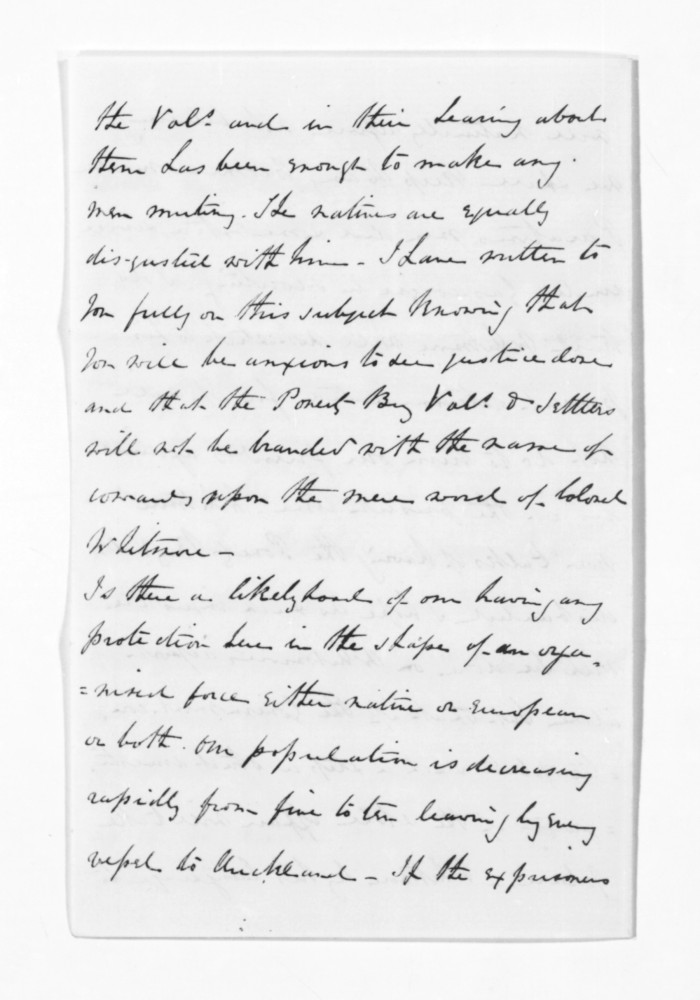 the Vols. and in their bearing about
them has been enough to make any
men mutiny. The natives are equally
dis-gusted with him - I have written to
you fully on this subject knowing that
you will be anxious to see justice done
and that the Poverty Bay Vols. & Settlers
will not be branded with the name of
cowards upon the mere word of Colonel
Whitmore -
Is there a likelyhood of our having any
protection here in the shape of an orga-
=nised force either native or European
or both. Our population is decreasing
rapidly from five to ten leaving by every
vessel to Auckland - If the exprisoners